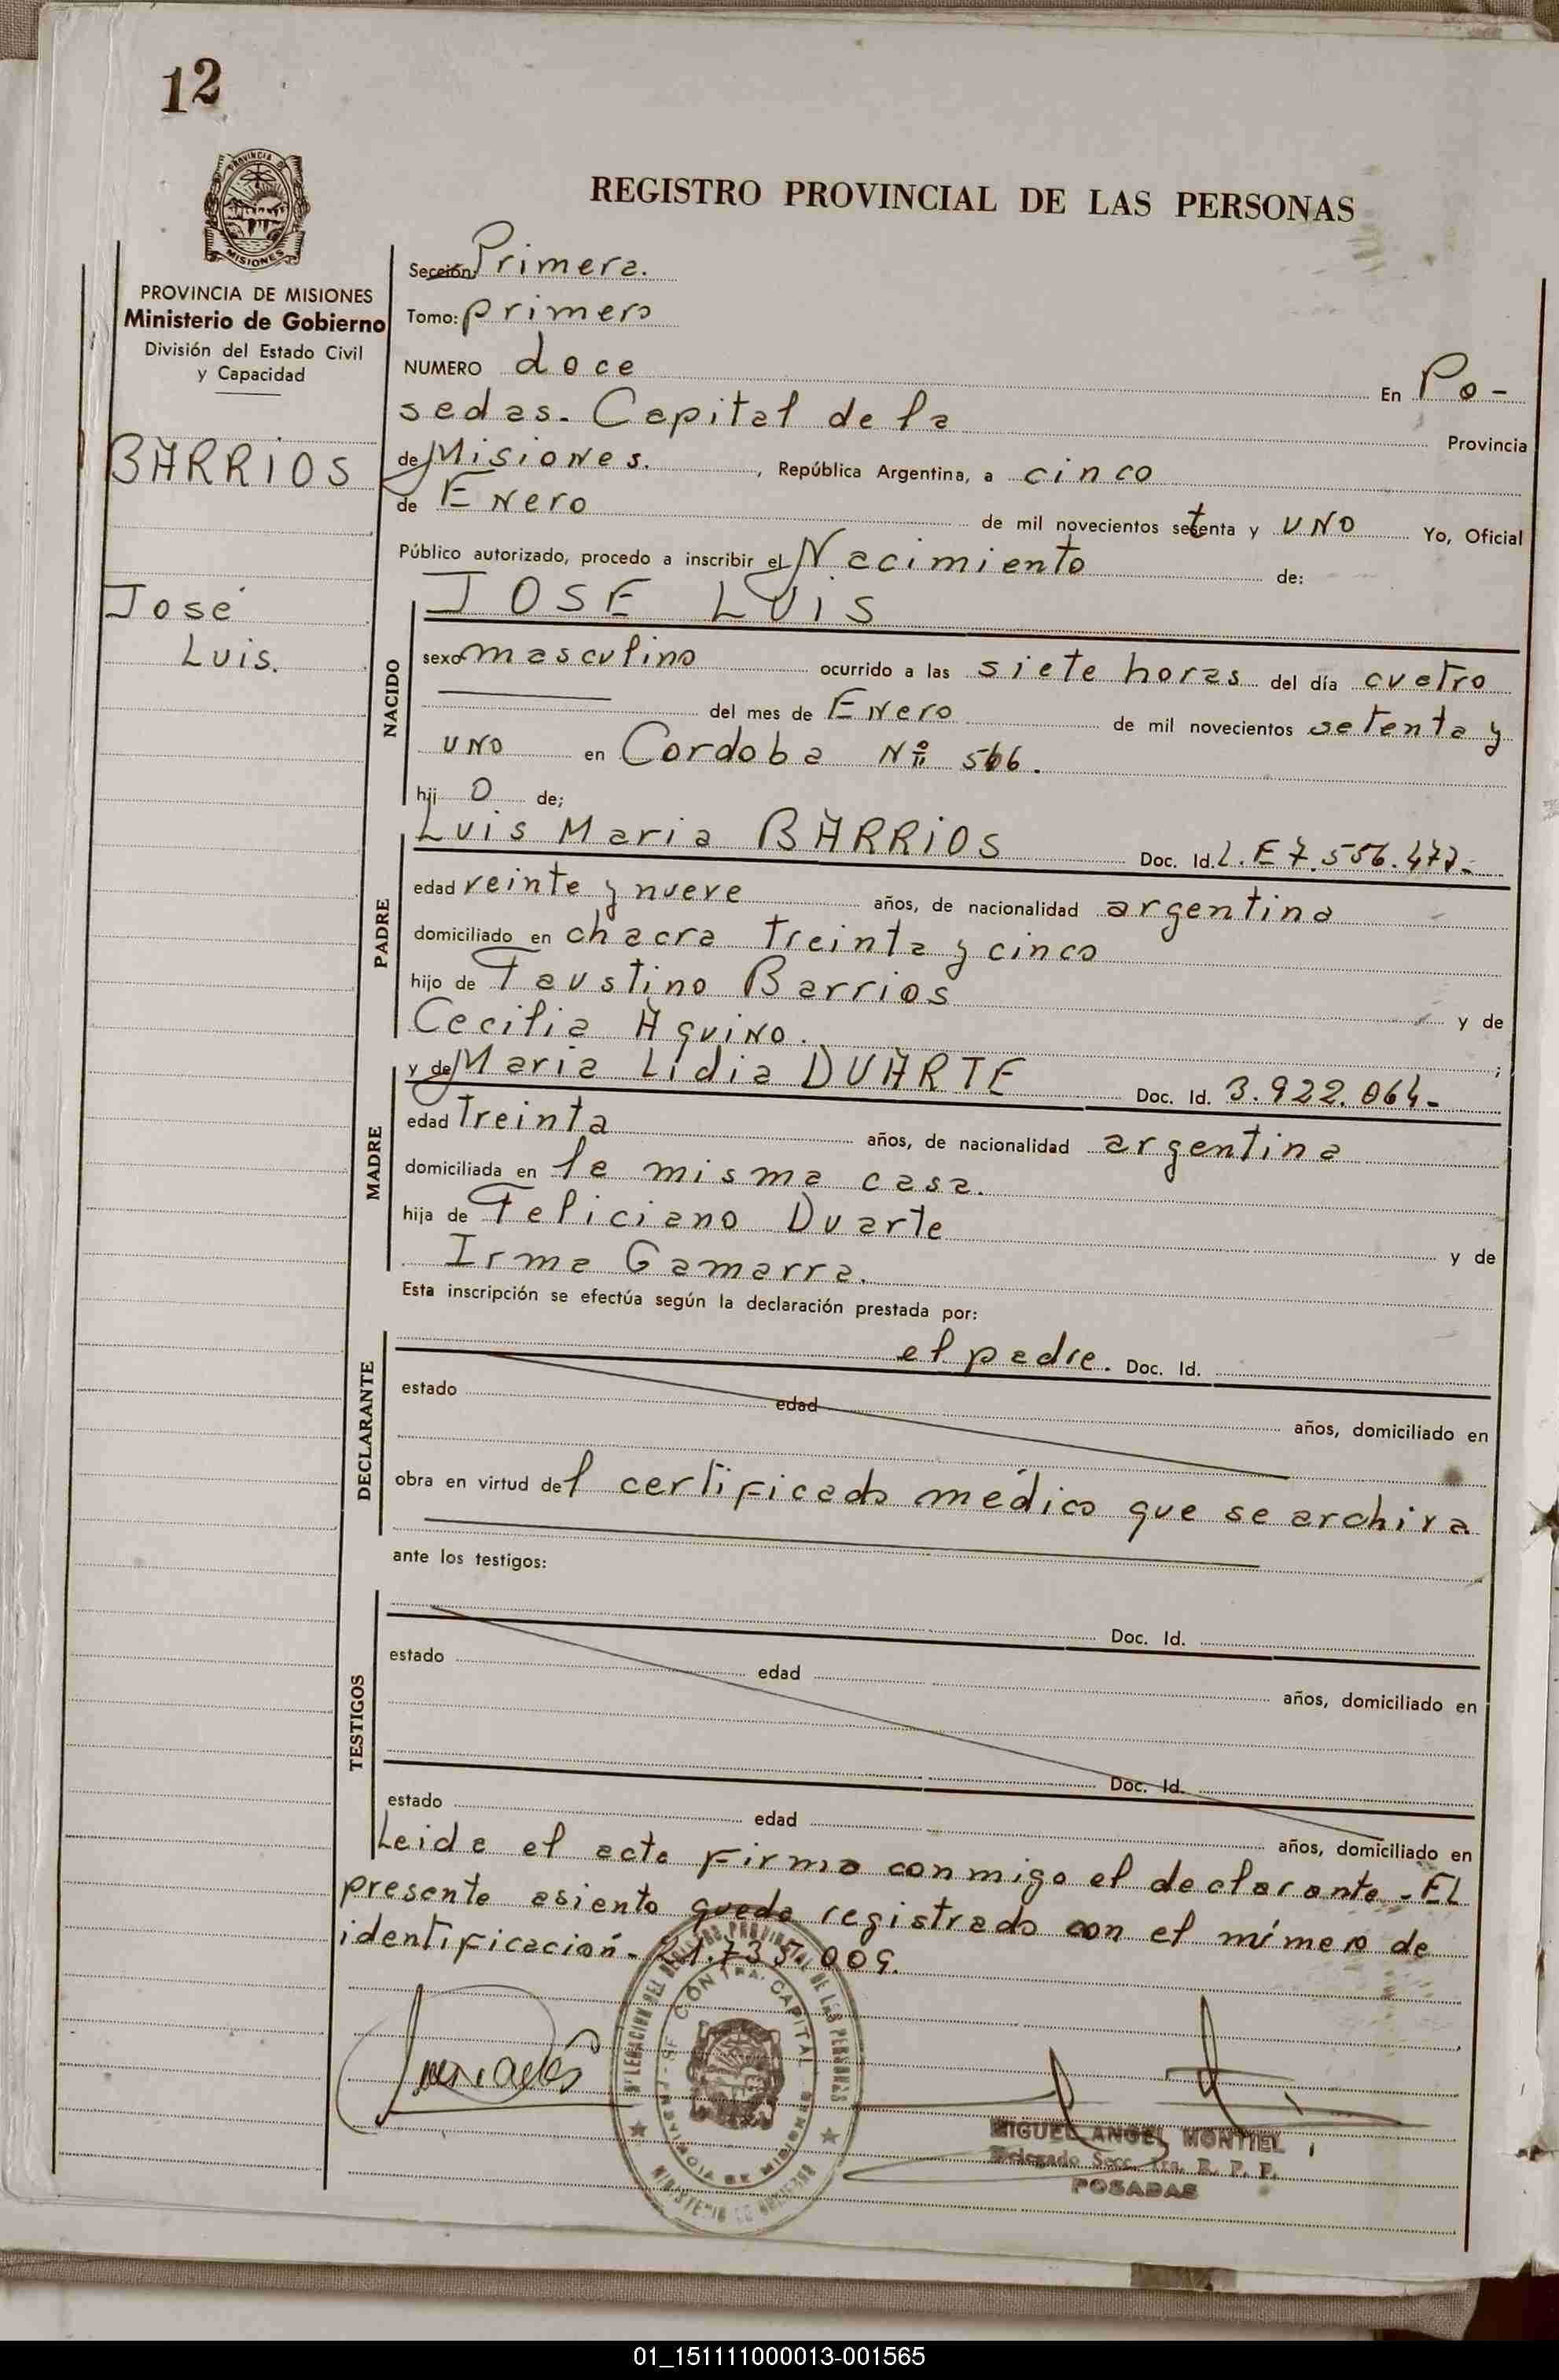 12
PROVINCIA DE
MISIONES
REGISTRO PROVINCIAL DE LAS PERSONAS
PROVINCIA DE MISIONES
Ministerio de Gobierno
División del Estado Civil
y Capacidad
BARRIOS
José
Luis.
Sección: Primera.
Tomo: primero
NUMERO doce En Po-
sadas. Capital de la Provincia
de Misiones. , República Argentina, a cinco
de Enero de mil novecientos setenta y uno Yo, Oficial
Público autorizado, procedo a inscribir el Nacimiento de:
NACIDO
JOSE LUIS
sexo masculino ocurrido a las siete horas del día cuatro
del mes de Enero de mil novecientos setenta y
uno en Cordoba Nº 566.
hij o de;
PADRE
Luis Maria BARRIOS Doc. Id. L. E 7.556.477-
edad veinte y nueve años, de nacionalidad argentina
domiciliado en chacra treinta y cinco
hijo de Faustino Barrios y de
Cecilia Aquino. ;
MADRE
y de Maria Lidia DUARTE Doc. Id. 3.922.064-
edad treinta años, de nacionalidad argentina
domiciliada en la misma casa.
hija de Feliciano Duarte y de
Irma Gamarra.
Esta inscripción se efectúa según la declaración prestada por:
DECLARANTE
el padre. Doc. Id.
estado edad años, domiciliado en
obra en virtud del certificado médico que se archiva
ante los testigos:
TESTIGOS
Doc. Id.
estado edad años, domiciliado en
Doc. Id.
estado edad años, domiciliado en
Leida el acta firma conmigo el declarante - El
presente asiento queda registrado con el número de
identificación - 21.735.009.
MIGUEL ANGEL MONTIEL
Delegado Secc. 1ra. R. P. P.
POSADAS
01_151111000013-001565